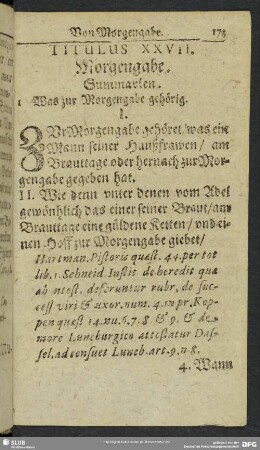 Von Morgengabe. 175
TITULUS XXVII.
Morgengabe.
Summarien.
1 Was zur Morgengabe gehörig.
I.
ZVr Morgengabe gehöret / was ein
Mann seiner Haußfrawen / am
Brauttage oder hernach zur Mor-
gengabe gegeben hat.
II. Wie denn vnter denen vom Adel
gewöhnlich das einer seiner Braut / am
Brauttage eine güldene Ketten / vnd ei-
nen Hoff zur Morgengabe giebet /
Hartman. Pistoris quæst. 44. per tot
lib. 1. Schneid. Instit. de heredit quæ
ab intest. deferuntur rubr. de suc-
cess viri & uxor. num. 4. in pr. Kop-
pen quest 14. nu. 6. 7. 8 & 9. & de
more Luneburgico attestatur Das-
sel. ad consuet Luneb. art. 9. n 8.
4. Wann
SLUB
DFG